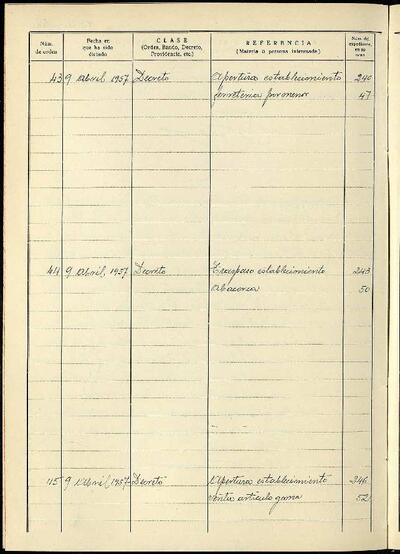 Núm. de orden
Fecha en que ha sido dictado
CLASE
(Orden, Bando, Decreto, Providencia, etc.)
REFERENCIA
(Materia o persona interesada)
Núm. de expediente, en su caso
43 9 Abril 1957 Decreto Apertura establecimiento 240
ferreteria pormenor 47
44 9 Abril 1957 Decreto Traspaso establecimiento 243
Abaceria 50
45 9 Abril 1957 Decreto Apertura establecimiento 246
venta articulo goma 52